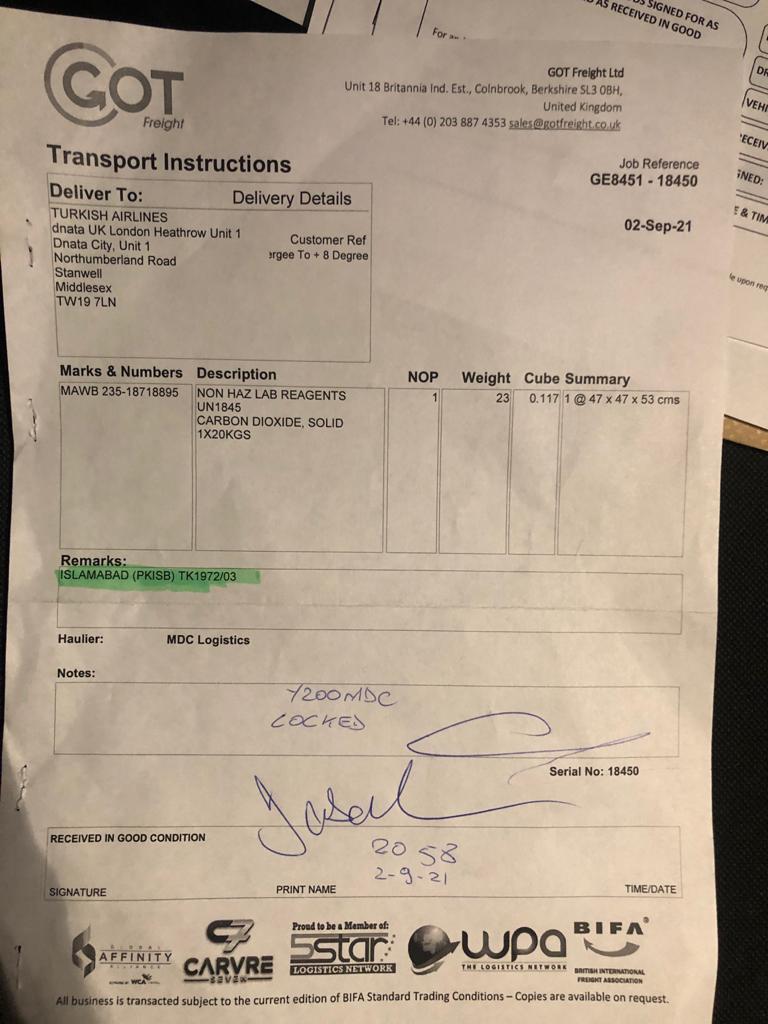 SIGNED FOR AS
AS RECEIVED IN GOOD
For
GOT
Freight
GOT Freight Ltd
Unit 18 Britannia Ind. Est., Colnbrook, Berkshire SL3 0BH,
United Kingdom
Tel: +44 (0) 203 887 4353 sales@gotfreight.co.uk
Transport Instructions
Job Reference
GE8451 - 18450
02-Sep-21
Deliver To: Delivery Details
TURKISH AIRLINES
dnata UK London Heathrow Unit 1
Dnata City, Unit 1
Northumberland Road
Stanwell
Middlesex
TW19 7LN
Customer Ref
ergee To + 8 Degree
Marks & Numbers Description NOP Weight Cube Summary
MAWB 235-18718895 NON HAZ LAB REAGENTS 1 23 0.117 1 @ 47 x 47 x 53 cms
UN1845
CARBON DIOXIDE, SOLID
1X20KGS
Remarks:
ISLAMABAD (PKISB) TK1972/03
Haulier: MDC Logistics
Notes:
Y200MDC
LOCKED
Serial No: 18450
RECEIVED IN GOOD CONDITION
20 58
2-9-21
SIGNATURE PRINT NAME TIME/DATE
GLOBAL
AFFINITY
ALLIANCE
C7
CARVRE
SEVEN
Proud to be a Member of:
5star
LOGISTICS NETWORK
wpa
THE LOGISTICS NETWORK
BIFA
BRITISH INTERNATIONAL
FREIGHT ASSOCIATION
All business is transacted subject to the current edition of BIFA Standard Trading Conditions – Copies are available on request.